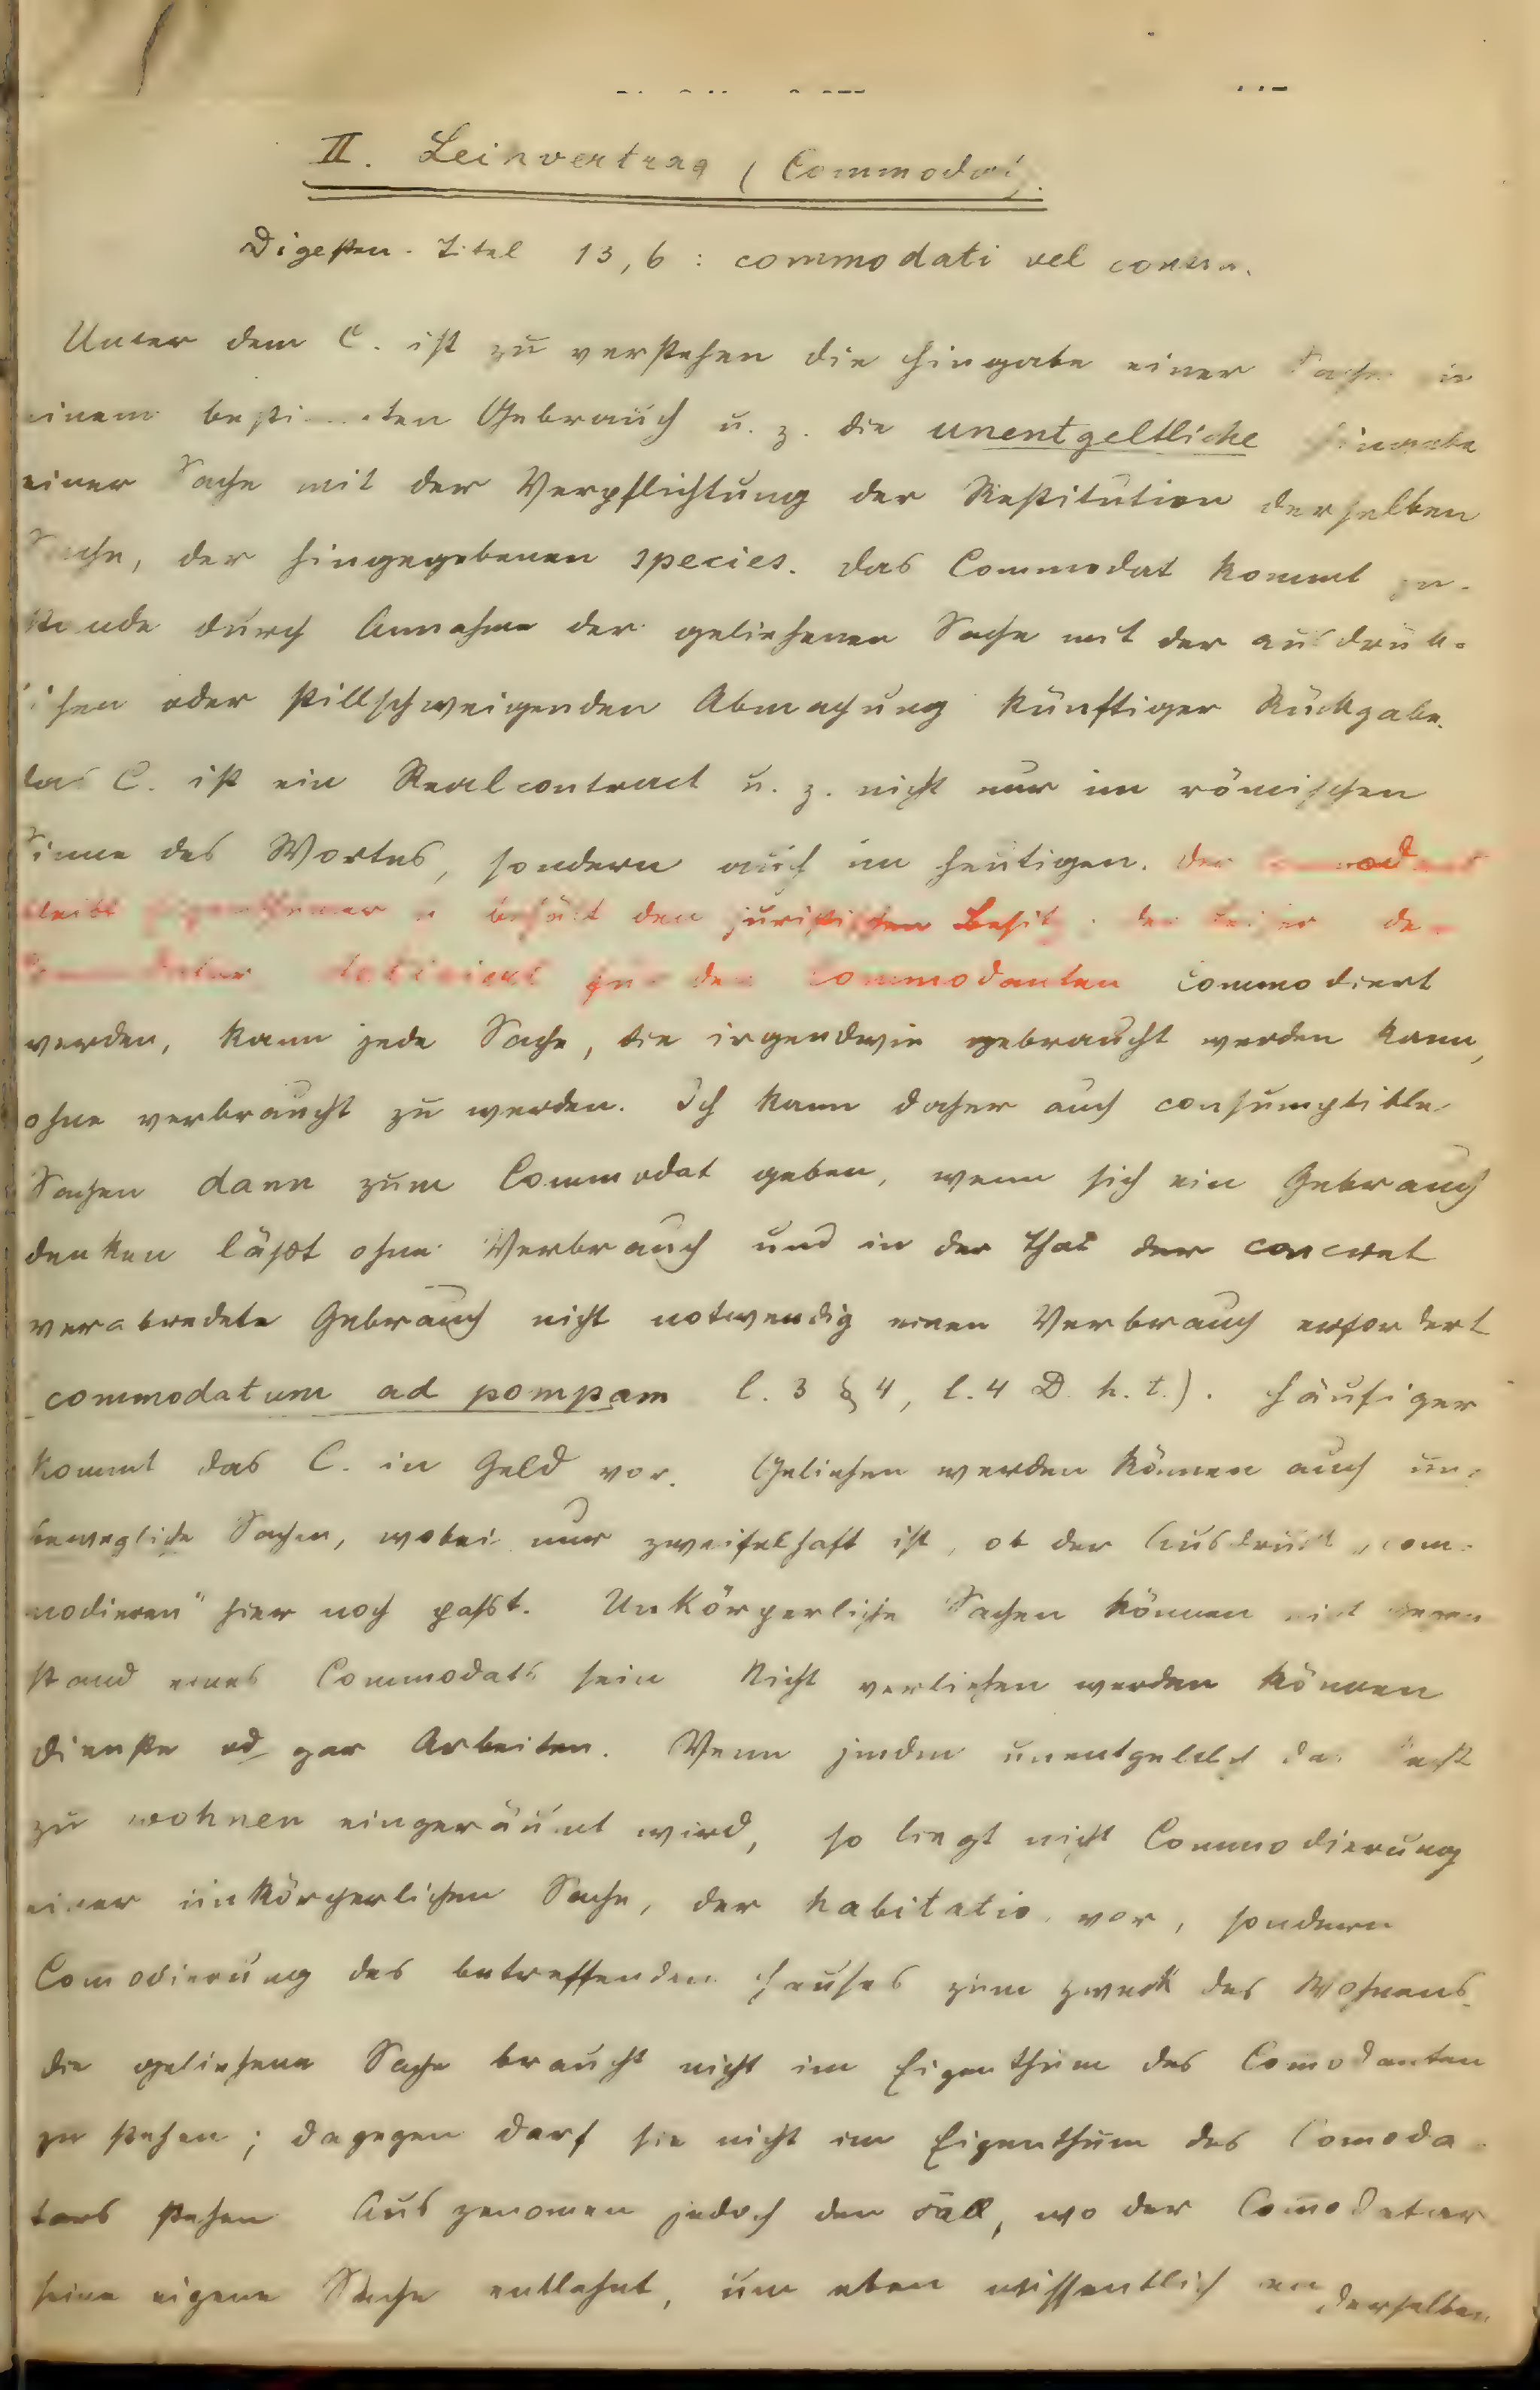 II. Leihvertrag (Commodat).
Digesten-Titel 13,6: commodati vel contra.
Unter dem C. ist zu verstehen die Hingabe einer Sache
einem bestimmten Gebrauch u. z. die unentgeltliche Hingabe
einer Sache mit der Verpflichtung der Restitution derselben
Sache, der hingegebenen species. Das Commodat kommt zu-
stande durch Annahme der geliehenen Sache mit der ausdrük-
lichen oder stillschweigenden Abmachung künftiger Rückgabe.
das C. ist ein Realcontract u. z. nicht nur im römischen
Sinne des Wortes, sondern auch im heutigen. Der Commodant
bleibt Eigenthümer u behält den juristischen Besitz der
Commodatar detiniert für den Commodanten Commodiert
werden, kann jede Sache, die irgendwie gebraucht werden kann,
ohne verbraucht zu werden. Ich kann daher auch consumptible
Sachen dann zum Commodat geben, wenn sich ein Gebrauch
denken läßt ohne Verbrauch und in der That der concret
verabredete Gebrauch nicht notwendig einen Verbrauch erfordert
commodatum ad pompam l. 3 § 4, l. 4 D. h. t.). Häufiger
kommt das C. in Geld vor. Geliehen werden können auch un-
bewegliche Sachen, wobei nur zweifelhaft ist, ob der Ausdruck „com-
modieren" hier noch paßt. Unkörperliche Sachen können nicht Gegen
stand eines Commodats sein Nicht verliehen werden können
Dienste od gar Arbeiten. Wenn jmdm unentgeltlich das Recht
zu wohnen eingeräumt wird, so liegt nicht Commodierung
einer unkörperlichen Sache, der habitatio, vor, sondern
Comodierung des betreffenden Hauses zum Zweck des Wohnens.
die geliehene Sache braucht nicht im Eigenthum des Comodanten
zu stehen; dagegen darf sie nicht im Eigenthum des Comoda-
tars stehen Ausgenomen jedoch den Fall, wo der Comodatar
seine eigene Sache entlehnt, um eben wissentlich an derselben